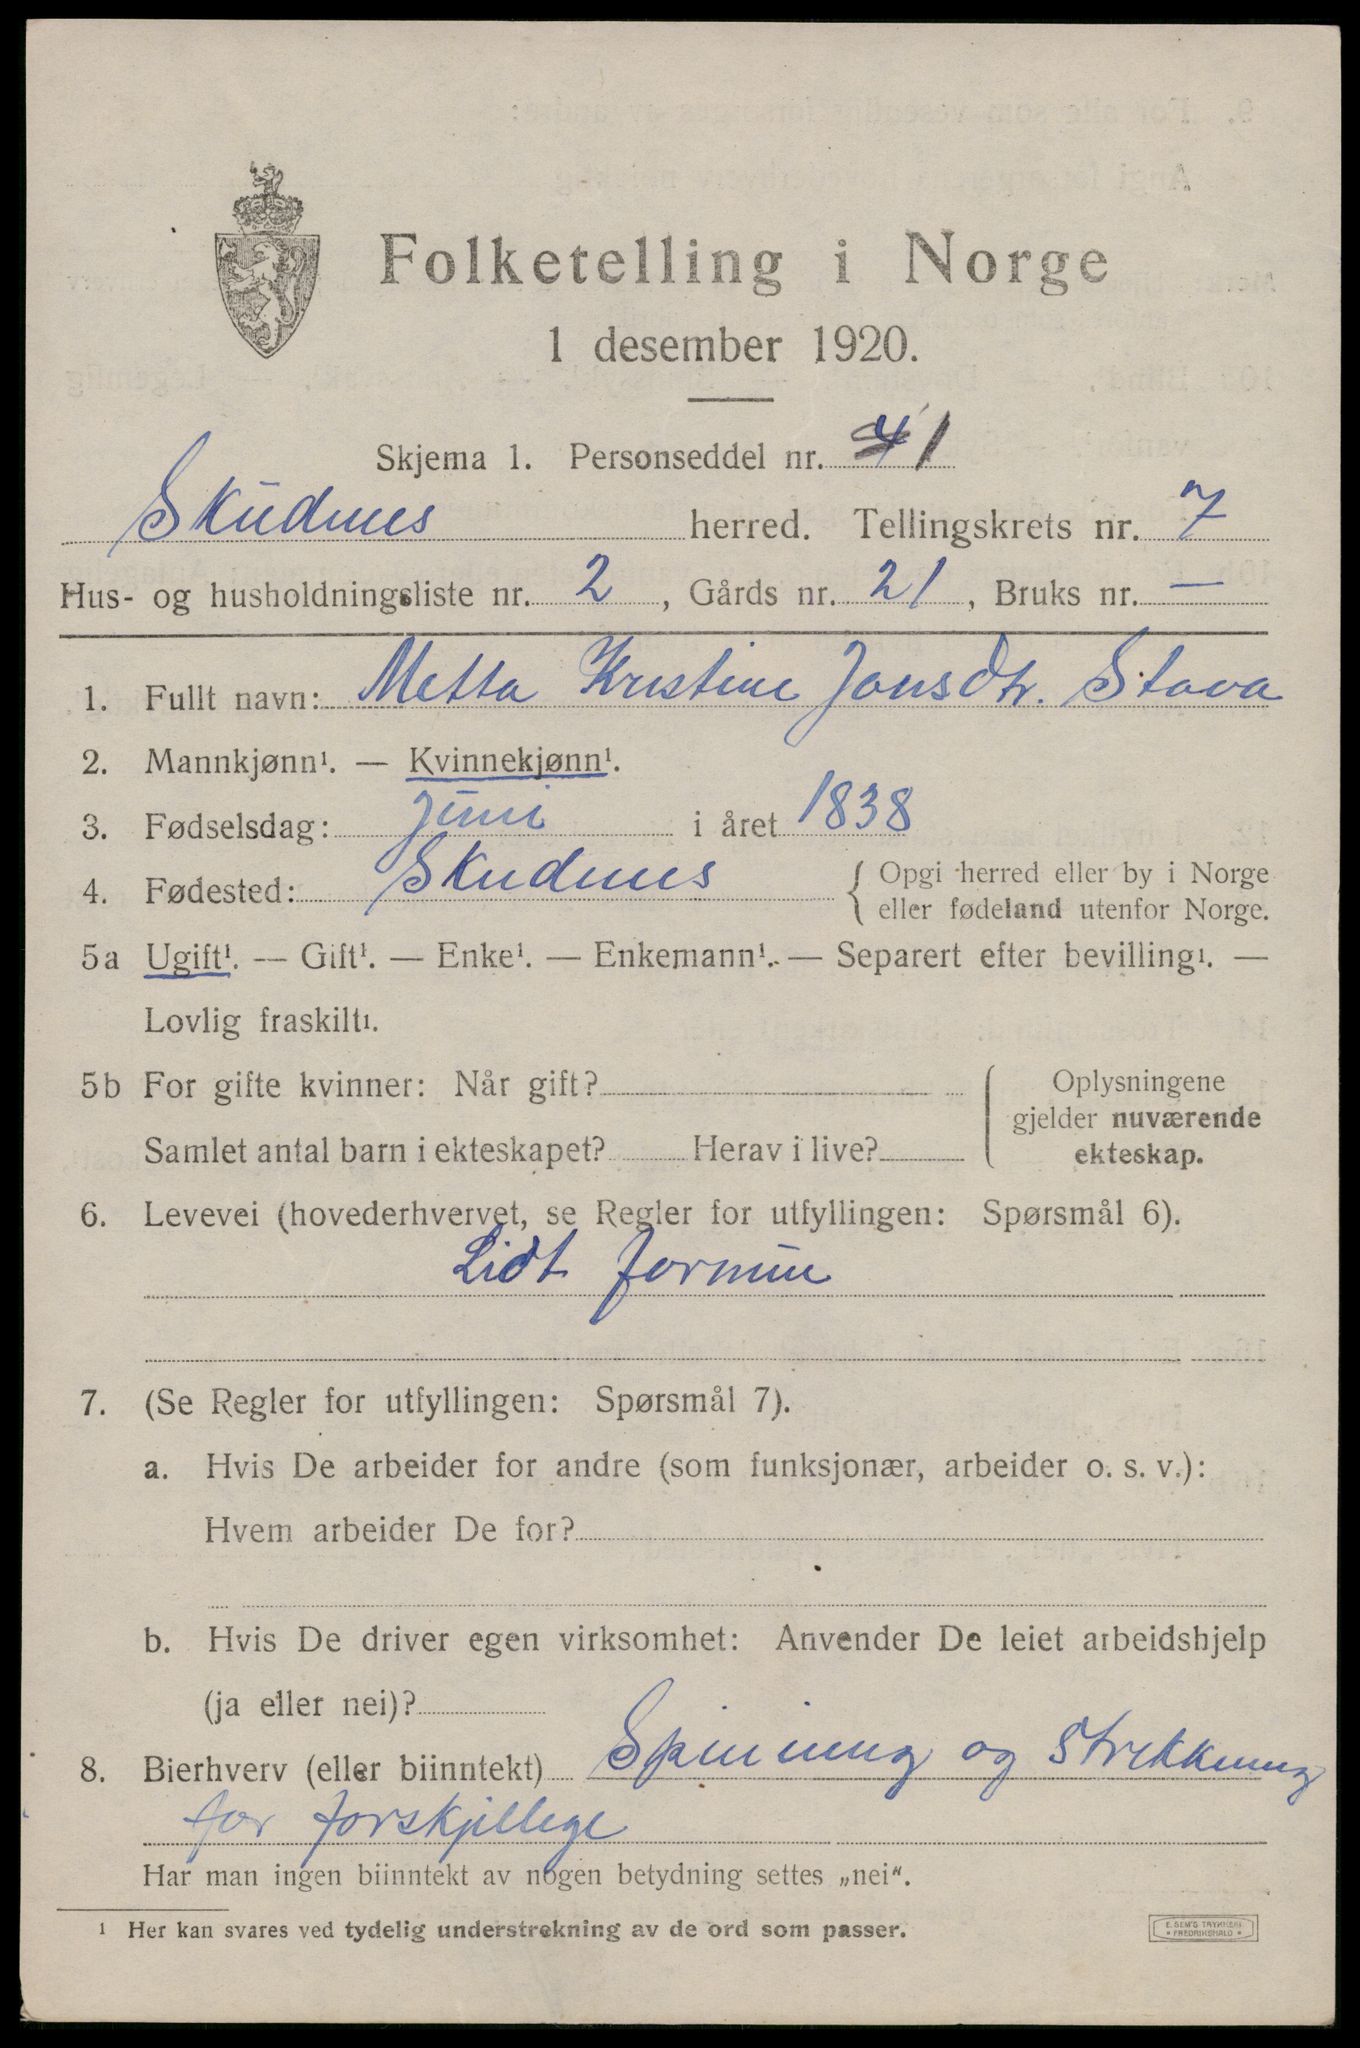 Folketelling i Norge
1 desember 1920.
Skjema 1. Personseddel nr. 41
Skudnes herred. Tellingskrets nr. 7
Hus- og husholdningsliste nr. 2, Gårds nr. 21, Bruks nr. —
1. Fullt navn: Metta Kristine Jonsdtr. Stava
2. Mannkjønn¹. — Kvinnekjønn¹.
3. Fødselsdag: Juni i året 1838
4. Fødested: Skudnes { Opgi herred eller by i Norge
eller fødeland utenfor Norge.
5a Ugift¹. — Gift¹. — Enke¹. — Enkemann¹. — Separert efter bevilling¹. —
Lovlig fraskilt¹.
5b For gifte kvinner: Når gift? Oplysningene
gjelder nuværende
Samlet antal barn i ekteskapet? Herav i live? ekteskap.
6. Levevei (hovederhvervet, se Regler for utfyllingen: Spørsmål 6).
Lidt formue
7. (Se Regler for utfyllingen: Spørsmål 7).
a. Hvis De arbeider for andre (som funksjonær, arbeider o. s. v.):
Hvem arbeider De for?
b. Hvis De driver egen virksomhet: Anvender De leiet arbeidshjelp
(ja eller nei)?
8. Bierhverv (eller biinntekt) Spinning og Strekkning
for forskjellege
Har man ingen biinntekt av nogen betydning settes „nei“.
¹ Her kan svares ved tydelig understrekning av de ord som passer.
E. SEM'S TRYKKERI
• FREDRIKSHALD •